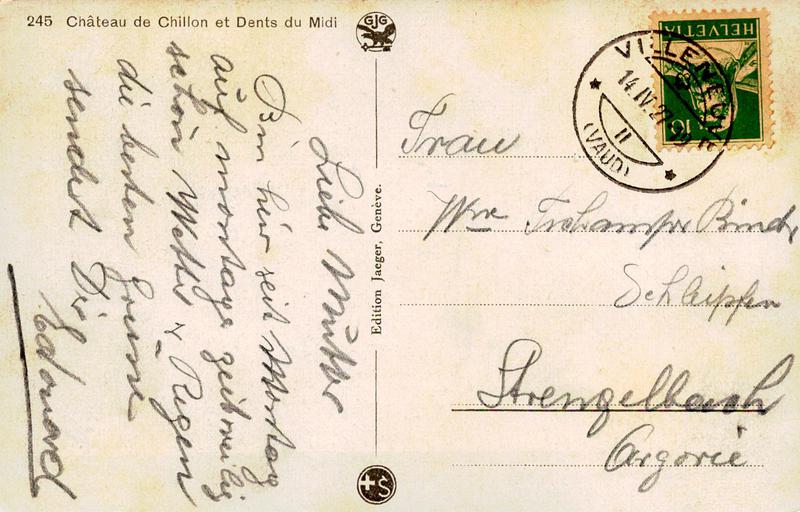 245 Château de Chillon et Dents du Midi
GJG
HELVETIA
10
VILLENEUVE
14.IV.2
II
(VAUD)
Liebe Mutter
Bin hier seit Montag
auf montage zeitweilig
schön Wetter & Regen
die besten Grüsse
sendet Dir
Edouard
Edition Jaeger, Genève.
Frau
Wve
Schleipfen
Strengelbach
Argovie
S